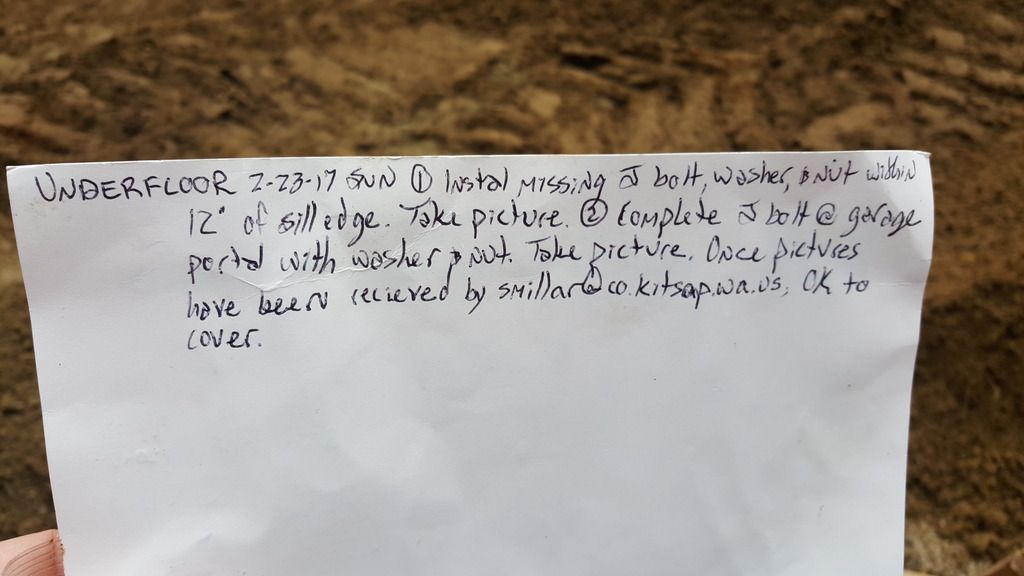 UNDERFLOOR 2-23-17 ① Instal missing J bolt, washer, & nut within
12" of sill edge. Take picture. ② Complete J bolt @ garage
portal with washer & nut. Take picture. Once pictures
have been recieved by smillar@co.kitsap.wa.us, OK to
cover.